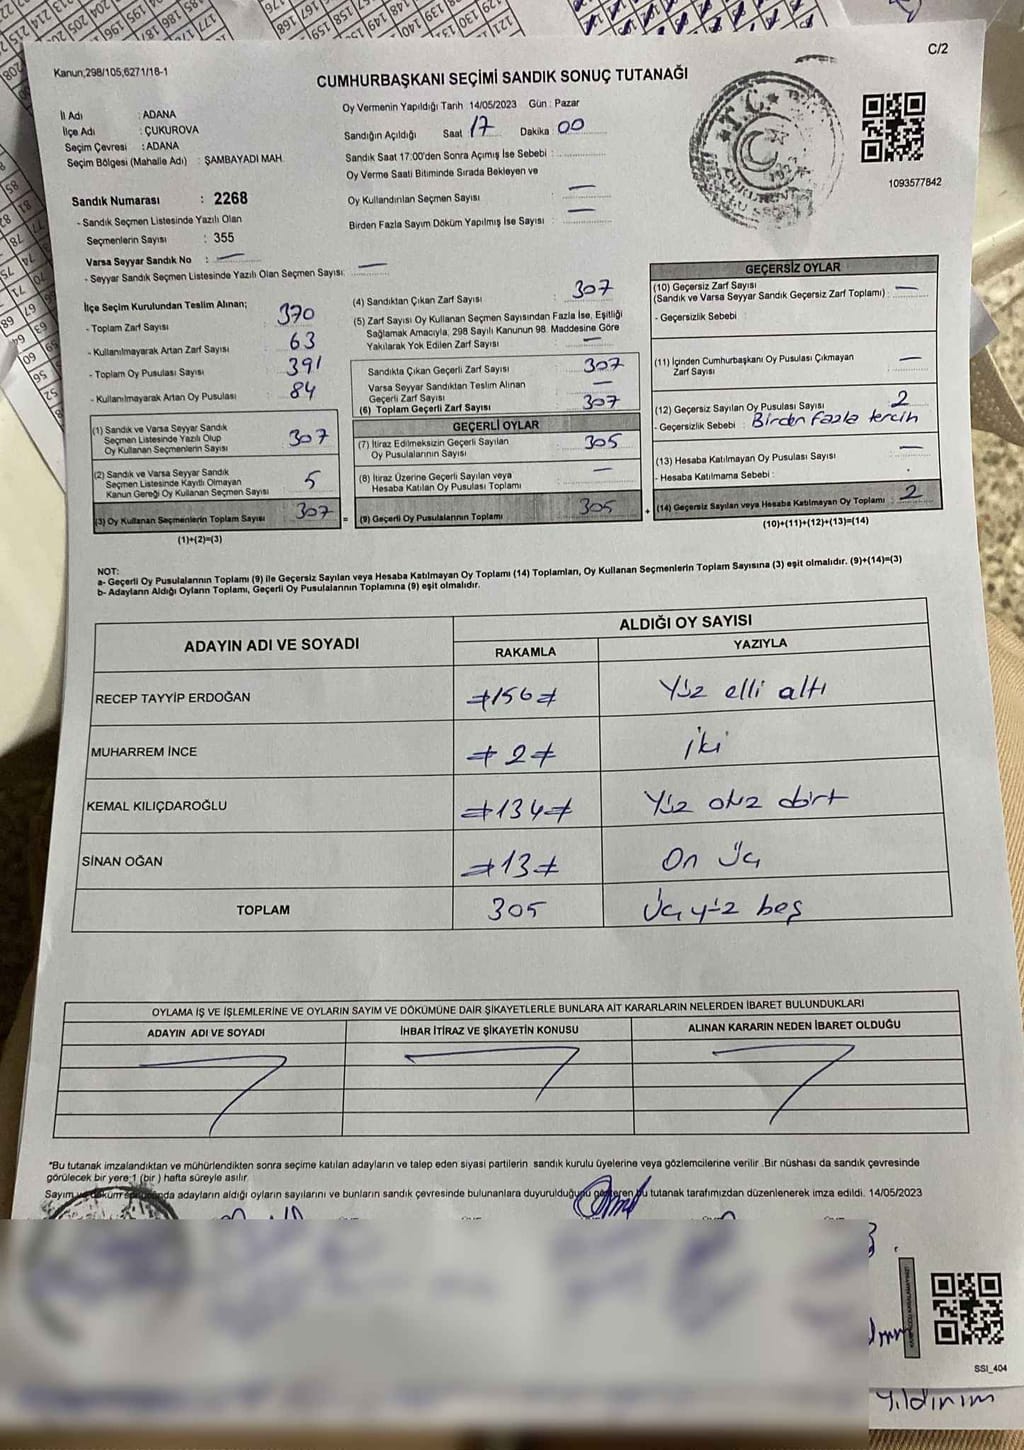 C/2
Kanun;298/105,6271/18-1
CUMHURBAŞKANI SEÇİMİ SANDIK SONUÇ TUTANAĞI
İl Adı : ADANA
İlçe Adı : ÇUKUROVA
Seçim Çevresi : ADANA
Seçim Bölgesi (Mahalle Adı) : ŞAMBAYADI MAH.
Oy Vermenin Yapıldığı Tarih 14/05/2023 Gün : Pazar
Sandığın Açıldığı Saat 17 Dakika 00
Sandık Saat 17:00'den Sonra Açımış İse Sebebi :
Oy Verme Saati Bitiminde Sırada Bekleyen ve
Oy Kullandırılan Seçmen Sayısı : —
Birden Fazla Sayım Döküm Yapılmış İse Sayısı : —
T.C.
1093577842
Sandık Numarası : 2268
- Sandık Seçmen Listesinde Yazılı Olan
Seçmenlerin Sayısı : 355
Varsa Seyyar Sandık No : —
- Seyyar Sandık Seçmen Listesinde Yazılı Olan Seçmen Sayısı: —
İlçe Seçim Kurulundan Teslim Alınan;
- Toplam Zarf Sayısı : 370
- Kullanılmayarak Artan Zarf Sayısı : 63
- Toplam Oy Pusulası Sayısı : 391
- Kullanılmayarak Artan Oy Pusulası : 84
(1) Sandık ve Varsa Seyyar Sandık
Seçmen Listesinde Yazılı Olup
Oy Kullanan Seçmenlerin Sayısı : 307
(2) Sandık ve Varsa Seyyar Sandık
Seçmen Listesinde Kayıtlı Olmayan
Kanun Gereği Oy Kullanan Seçmen Sayısı : 5
(3) Oy Kullanan Seçmenlerin Toplam Sayısı 307 =
(1)+(2)=(3)
(4) Sandıktan Çıkan Zarf Sayısı : 307
(5) Zarf Sayısı Oy Kullanan Seçmen Sayısından Fazla İse, Eşitliği
Sağlamak Amacıyla, 298 Sayılı Kanunun 98. Maddesine Göre
Yakılarak Yok Edilen Zarf Sayısı : —
Sandıkta Çıkan Geçerli Zarf Sayısı : 307
Varsa Seyyar Sandıktan Teslim Alınan
Geçerli Zarf Sayısı : —
(6) Toplam Geçerli Zarf Sayısı : 307
GEÇERLİ OYLAR
(7) İtiraz Edilmeksizin Geçerli Sayılan
Oy Pusulalarının Sayısı : 305
(8) İtiraz Üzerine Geçerli Sayılan veya
Hesaba Katılan Oy Pusulası Toplamı : —
(9) Geçerli Oy Pusulalarının Toplamı : 305 +
GEÇERSİZ OYLAR
(10) Geçersiz Zarf Sayısı
(Sandık ve Varsa Seyyar Sandık Geçersiz Zarf Toplamı) : —
- Geçersizlik Sebebi :
(11) İçinden Cumhurbaşkanı Oy Pusulası Çıkmayan
Zarf Sayısı : —
(12) Geçersiz Sayılan Oy Pusulası Sayısı : 2
- Geçersizlik Sebebi : Birden fazla tercih
(13) Hesaba Katılmayan Oy Pusulası Sayısı : —
- Hesaba Katılmama Sebebi :
(14) Geçersiz Sayılan veya Hesaba Katılmayan Oy Toplamı : 2
(10)+(11)+(12)+(13)=(14)
NOT:
a- Geçerli Oy Pusulalarının Toplamı (9) ile Geçersiz Sayılan veya Hesaba Katılmayan Oy Toplamı (14) Toplamları, Oy Kullanan Seçmenlerin Toplam Sayısına (3) eşit olmalıdır. (9)+(14)=(3)
b- Adayların Aldığı Oyların Toplamı, Geçerli Oy Pusulalarının Toplamına (9) eşit olmalıdır.
ADAYIN ADI VE SOYADI
ALDIĞI OY SAYISI
RAKAMLA YAZIYLA
RECEP TAYYİP ERDOĞAN ≠156≠ Yüz elli altı
MUHARREM İNCE ≠2≠ iki
KEMAL KILIÇDAROĞLU ≠134≠ Yüz otuz dört
SİNAN OĞAN ≠13≠ On Üç
TOPLAM 305 Üçyüz beş
OYLAMA İŞ VE İŞLEMLERİNE VE OYLARIN SAYIM VE DÖKÜMÜNE DAİR ŞİKAYETLERLE BUNLARA AİT KARARLARIN NELERDEN İBARET BULUNDUKLARI
ADAYIN ADI VE SOYADI İHBAR İTİRAZ VE ŞİKAYETİN KONUSU ALINAN KARARIN NEDEN İBARET OLDUĞU
*Bu tutanak imzalandıktan ve mühürlendikten sonra seçime katılan adayların ve talep eden siyasi partilerin sandık kurulu üyelerine veya gözlemcilerine verilir .Bir nüshası da sandık çevresinde
görülecek bir yere 1 (bir ) hafta süreyle asılır.
Sayım ve adayların aldığı oyların sayılarını ve bunların sandık çevresinde bulunanlara duyurulduğunu gösteren bu tutanak tarafımızdan düzenlenerek imza edildi. 14/05/2023
SSI_404
Yıldırım